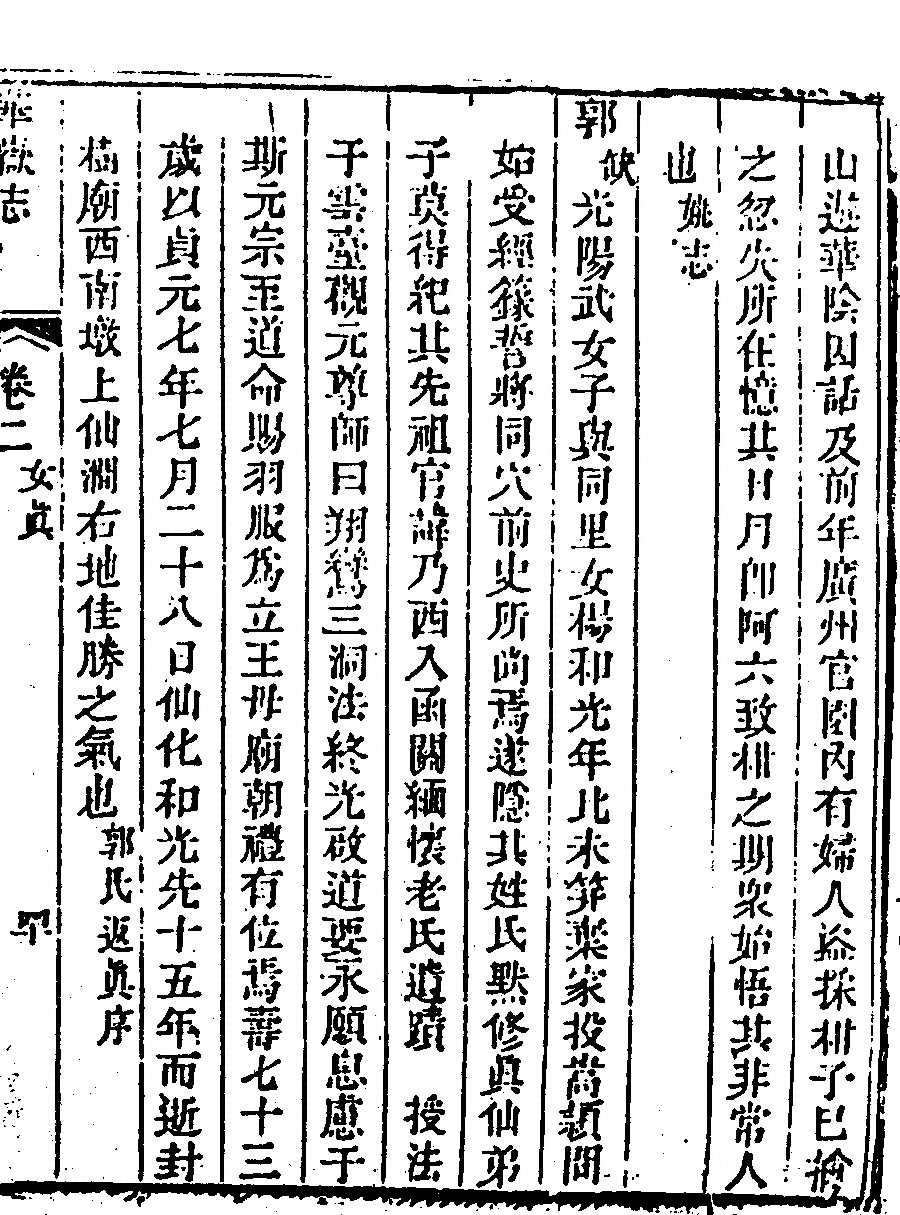 山遊華陰因話及前年廣州官園內有婦人盜採柑子已擒
之忽失所在憶其日月即阿六致柑之期衆始悟其非常人
也姚志
郭缺光陽武女子與同里女楊和光年比未笄棄家投嵩頴間
始受經籙誓將同穴前史所尚焉遂隱其姓氏默修眞仙弟
子莫得紀其先祖官諱乃西入函關緬懷老氏遺蹟 授法
于雲臺觀元尊師曰翔鸞三洞法終光啟道要永願息慮于
斯元宗至道命賜羽服爲立王母廟朝禮有位焉壽七十三
歲以貞元七年七月二十八日仙化和光先十五年而逝封
樹廟西南墩上仙澗右地佳勝之氣也郭氏返眞序
華嶽志 卷二 女眞